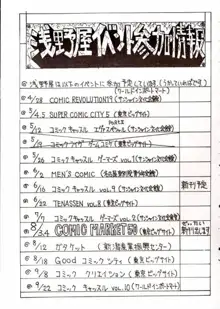 浅野屋イベント参加情報
@浅野屋は以下のイベントに参加予定しています(うかっていればですが)
(ワールドインポートマート)
@4/28 COMIC REVOLUTION19 (サンシャイン文化会館)
@5/3.4.5 SUPER COMIC CITY 5 (東京ビッグサイト)
@5/12 コミックキャッスル (サンシャイン文化会館)
@5/26 コミックキャッスル ゲーマーズ vol.1 (サンシャイン文化会館)
@6/2 MEN'S COMIC (名古屋
@6/16 コミックキャッスル vol.9 (サンシャイン文化会館) 新刊予定
@6/22 TENASSEN vol.8 (東京ビッグサイト)
@7/7 コミックキャッスル ゲーマーズ vol.2 (サンシャイン文化会館)
@8/3.4 COMIC MARKET 50 (東京ビッグサイト) 新刊出します
@8/12 ガタケット (新潟産業振興センター)
@8/18 Good コミックシティ (東京ビッグサイト)
@9/8 コミック クリエイション (東京ビッグサイト)
@9/22 コミックキャッスル vol.10 (ワールドインポートマート)